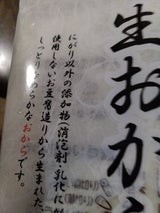 生おから
にがり以外の添加物(消泡剤・乳化に
使用しないお豆腐造りから生まれた
しっとりなめらかなおからです。